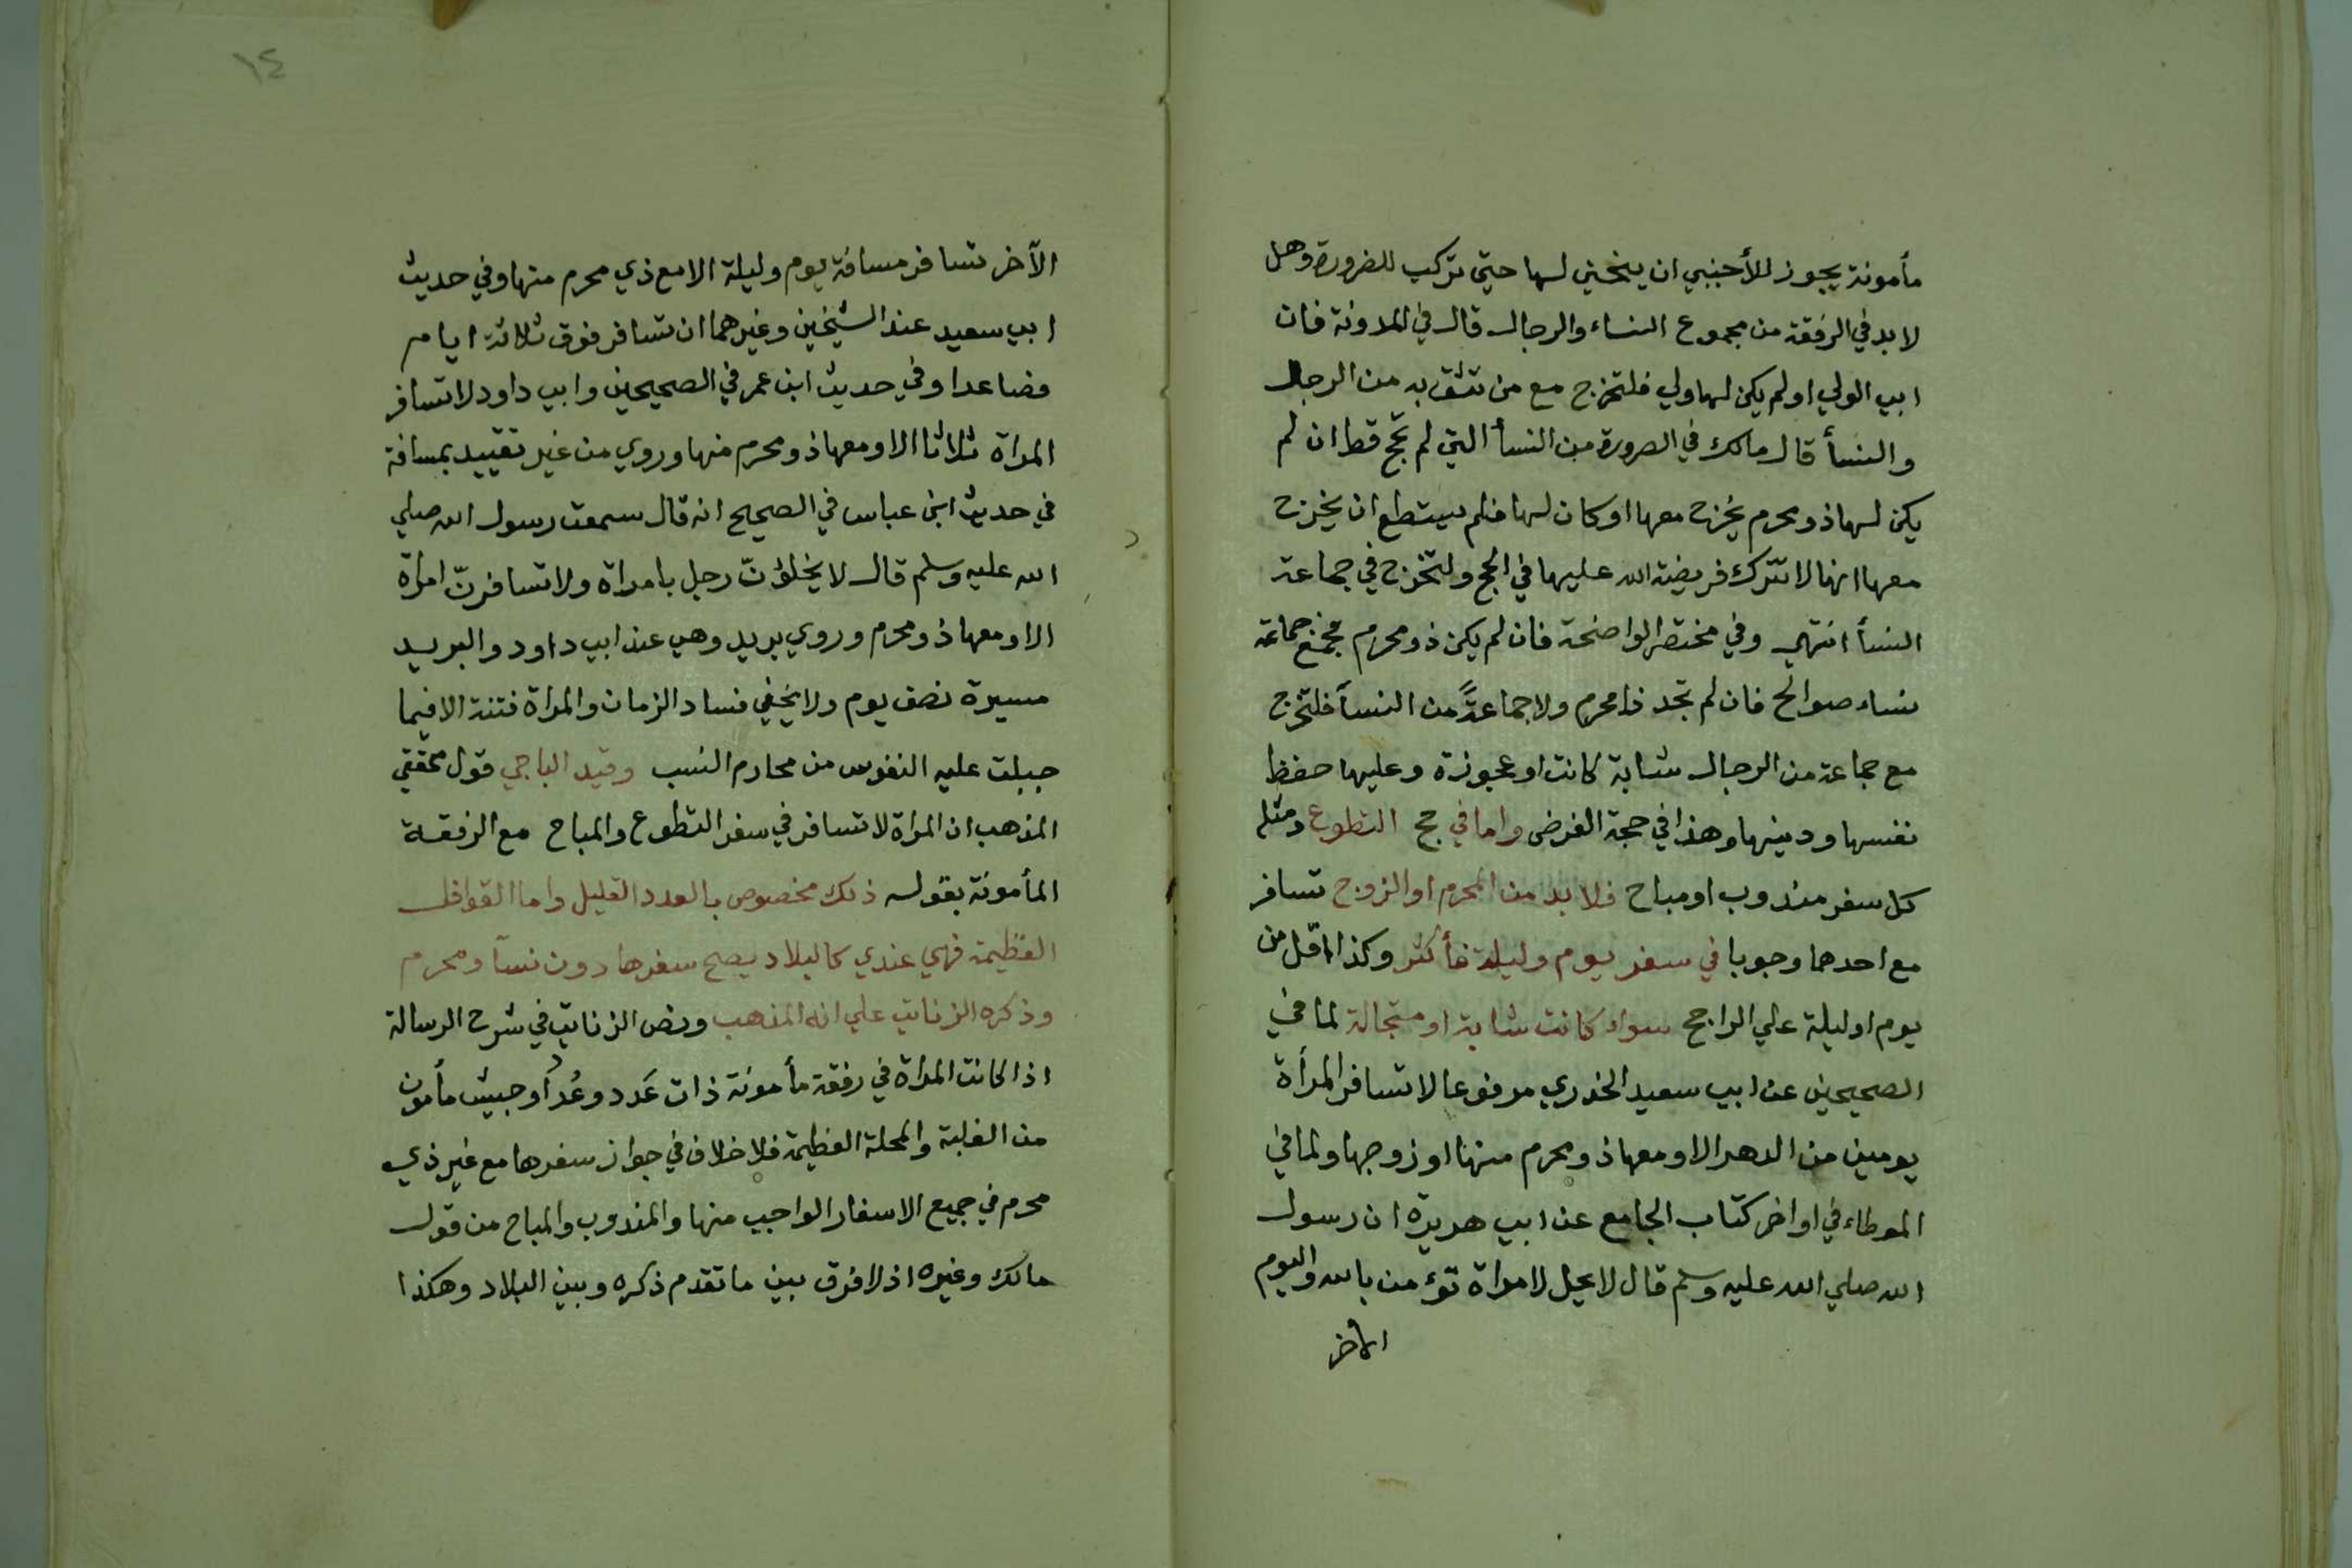 مأمونة يجوز للأجنبي ان ينحني لها حتي تركب للضرورة وهل
لا بد في الرفقة من مجموع النساء والرجال قال في المدونة فان
ابي الولي او لم يكن لها ولي فلتخرج مع من تثق به من الرجال
والنسأ قال مالك في الصرورة من النسأ التي لم تحج قط ان لم
يكن لها ذو محرم يخرج معها او كان لها فلم يستطع ان يخرج
معها انها لا تترك فريضة الله عليها في الحج ولتخرج في جماعة
النسأ انتهي وفي مختصر الواضحة فان لم يكن ذو محرم فمع جماعة
نساء صوالح فان لم تجد ذا محرم ولا جماعةً من النسأ فلتخرج
مع جماعة من الرجال شابة كانت او عجوزة وعليها حفظ
نفسها ودينها وهذا في حجة الفرض واما في حج التطوع ومثله
كل سفر مندوب او مباح فلا بد من المحرم او الزوج تسافر
مع احدهما وجوبا في سفر يوم وليلة فأكثر وكذا اقل من
يوم او ليلة علي الراجح سواء كانت شابة او متجالة لما في
الصحيحين عن ابي سعيد الخدري مرفوعا لا تسافر المرأة
يومين من الدهر الا ومعها ذو محرم منها او زوجها ولما في
الموطاء في اواخر كتاب الجامع عن ابي هريرة ان رسول
الله صلي الله عليه وسلم قال لا يحل لامراة تؤمن بالله واليوم
الآخر
١٤
الآخر تسافر مسافة يوم وليلة الا مع ذي محرم منها وفي حديث
ابي سعيد عند الشيخين وغيرهما ان تسافر فوق ثلاثة ايام
فصاعدا وفي حديث ابن عمر في الصحيحين وابي داود لا تسافر
المراة ثلاثا الا ومعها ذو محرم منها وروي من غير تقييد بمسافة
في حديث ابن عباس في الصحيح انه قال سمعت رسول الله صلي
الله عليه وسلم قال لا يخلونّ رجل بامراة ولا تسافرنّ امراة
الا ومعها ذو محرم وروي بريد وهي عند ابي داود والبريد
مسيرة نصف يوم ولا يخفي فساد الزمان والمراة فتنة الا فيما
جبلت عليه النفوس من محارم النسب وقيد الباجي قول محققي
المذهب ان المراة لا تسافر في سفر التطوع والمباح مع الرفقة
المأمونة بقوله ذلك مخصوص بالعدد القليل واما القوافل
العظيمة فهي عندي كالبلاد يصح سفرها دون نسآ ومحرم
وذكره الزناتي علي انه المذهب ونص الزناتي في شرح الرسالة
اذا كانت المراة في رفقة مأمونة ذات عَدد وعُدد او جيش مأمون
من الغلبة والمحلة العظيمة فلا خلاف في جواز سفرها مع غير ذي
محرم في جميع الاسفار الواجب منها والمندوب والمباح من قول
مالك وغيره اذ لا فرق بين ما تقدم ذكره وبين البلاد وهكذا